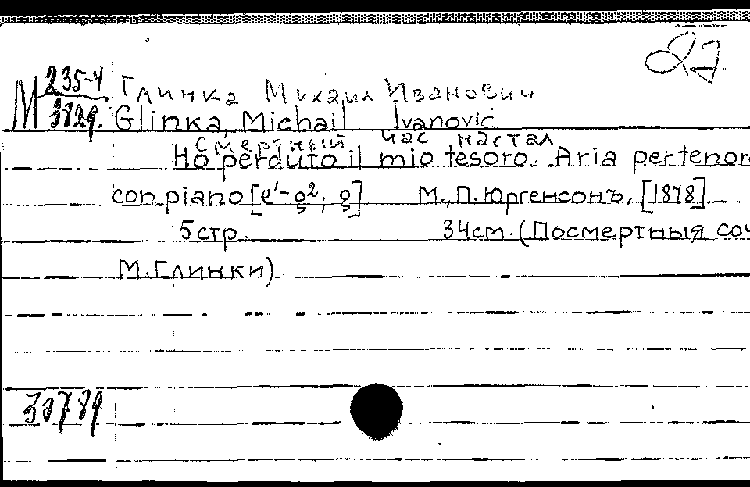 27
М 235-4 Глинка Михаил Иванович
3829. Glinka, Michail Ivanovič
Смертный час настал
Ho perduto il mio tesoro. Aria per tenor
con piano [e'-g2; g] М., П. Юргенсонъ, [1878]
5 стр. 34 см. (Посмертныя соч
М. Глинки)
30789